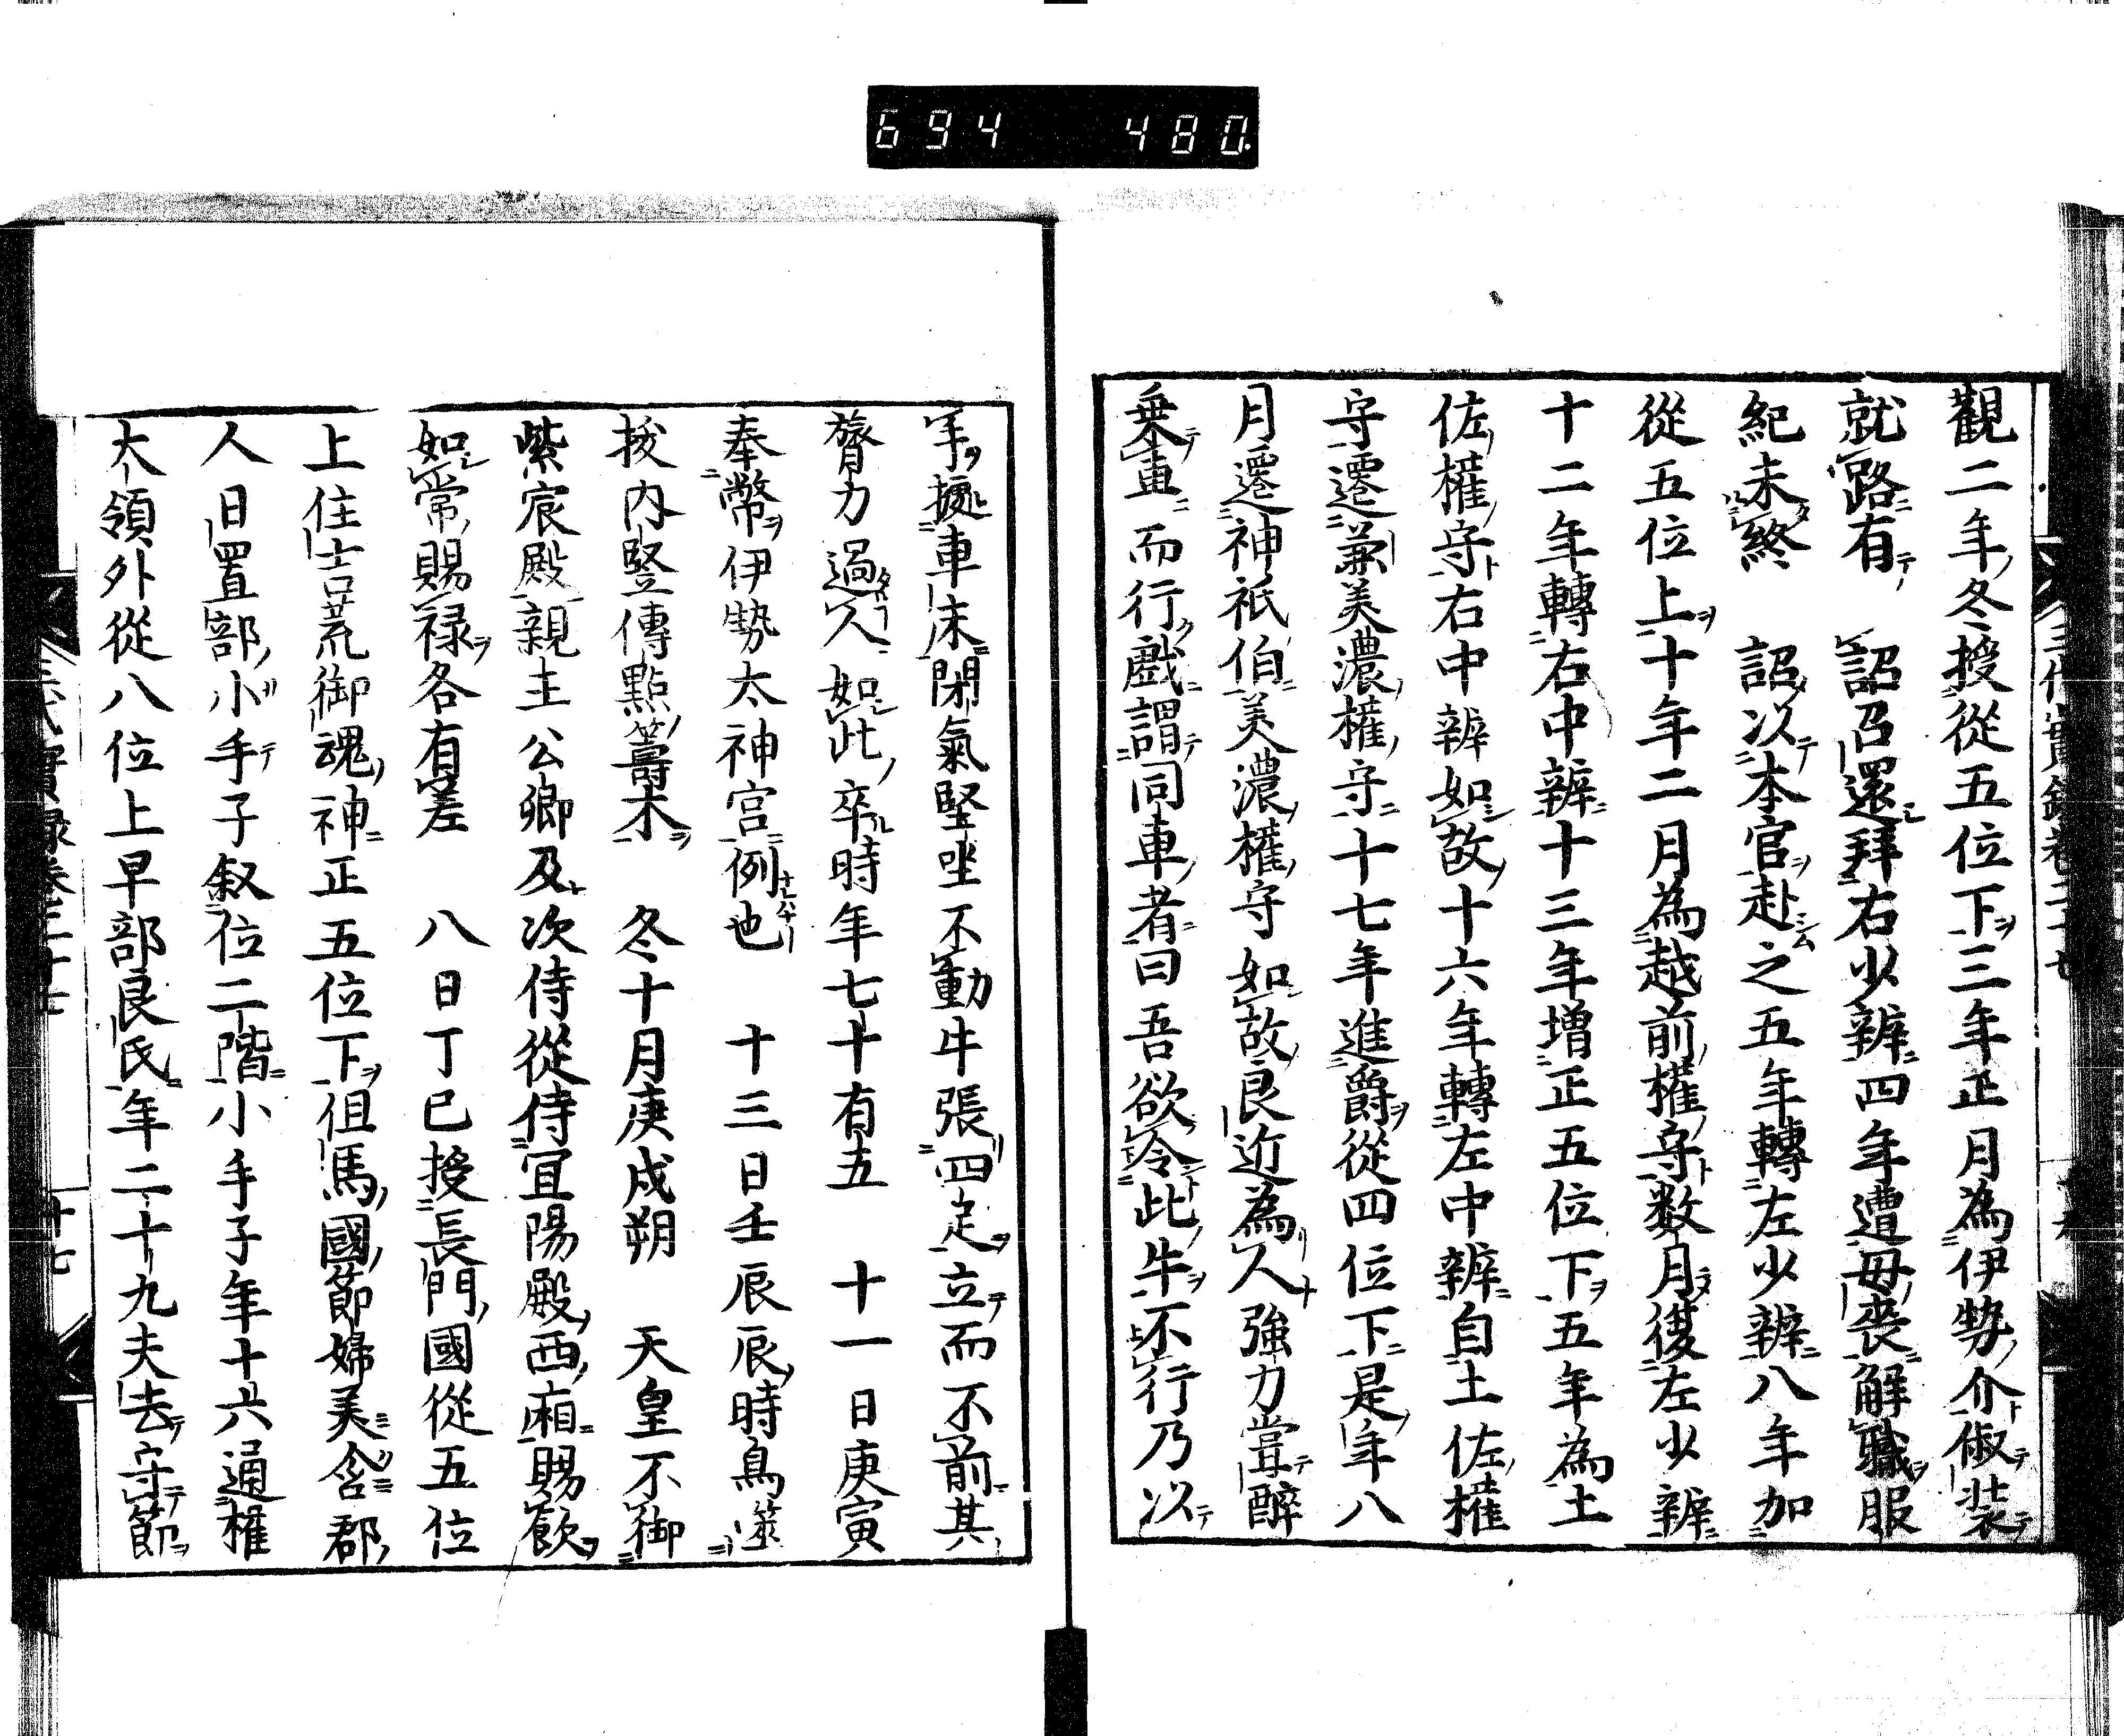 694 480
觀二年冬授從五位下三年正月為伊勢介俶装
就路有 詔召還拜右少辨四年遭母喪解職服
紀未終 詔以本官赴之五年轉左少辨八年加
從五位上十年二月為越前權守数月復左少辨
十二年轉右中辨十三年増正五位下五年為土
佐權守右中辨如故十六年轉左中辨自土佐權
守遷兼美濃權守十七年進爵從四位下是年八
月遷神祇伯美濃權守如故良近為人強力嘗醉
乗車而行戯謂同車者曰吾欲令此牛不行乃以
手擬車床閉氣堅坐不動牛張四足立而不前其
膂力過人如此卒時年七十有五 十一日庚寅
奉幣伊勢太神宮例也 十三日壬辰辰時鳥噬
拔内竪傳點籌木 冬十月庚戌朔 天皇不御
紫宸殿親王公卿及次侍從侍冝陽殿西廂賜飲
如常賜禄各有差 八日丁巳授長門國從五位
上住吉荒御魂神正五位下但馬國節婦美含郡
人日置部小手子叙位二階小手子年十六通權
大領外從八位上早部良氏年二十九夫去守節